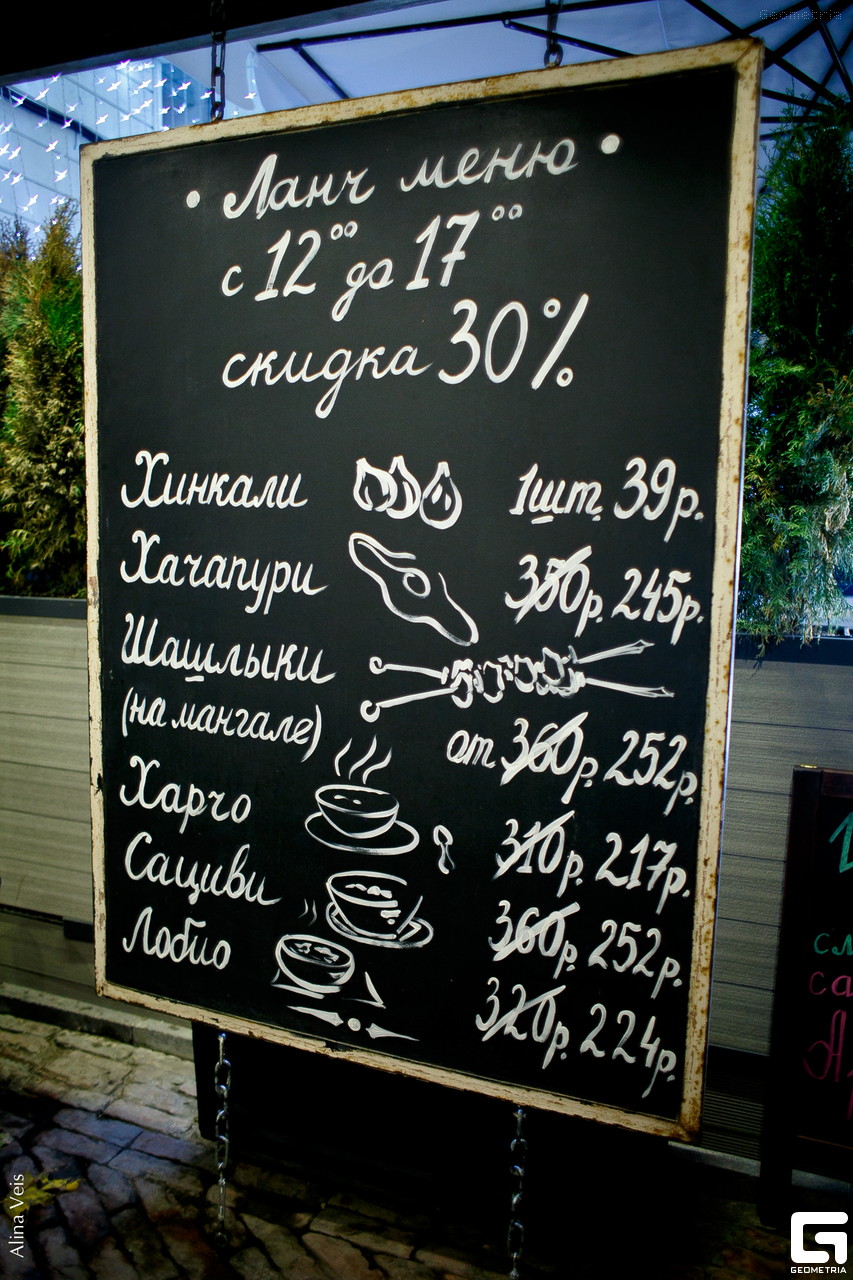 Geometria
• Ланч меню •
с 12⁰⁰ до 17⁰⁰
скидка 30%
Хинкали 1шт. 39р.
Хачапури 350р. 245р.
Шашлыки
(на мангале) от 360р. 252р.
Харчо 310р. 217р.
Сациви 360р. 252р.
Лобио 320р. 224р.
Alina Veis
GEOMETRIA